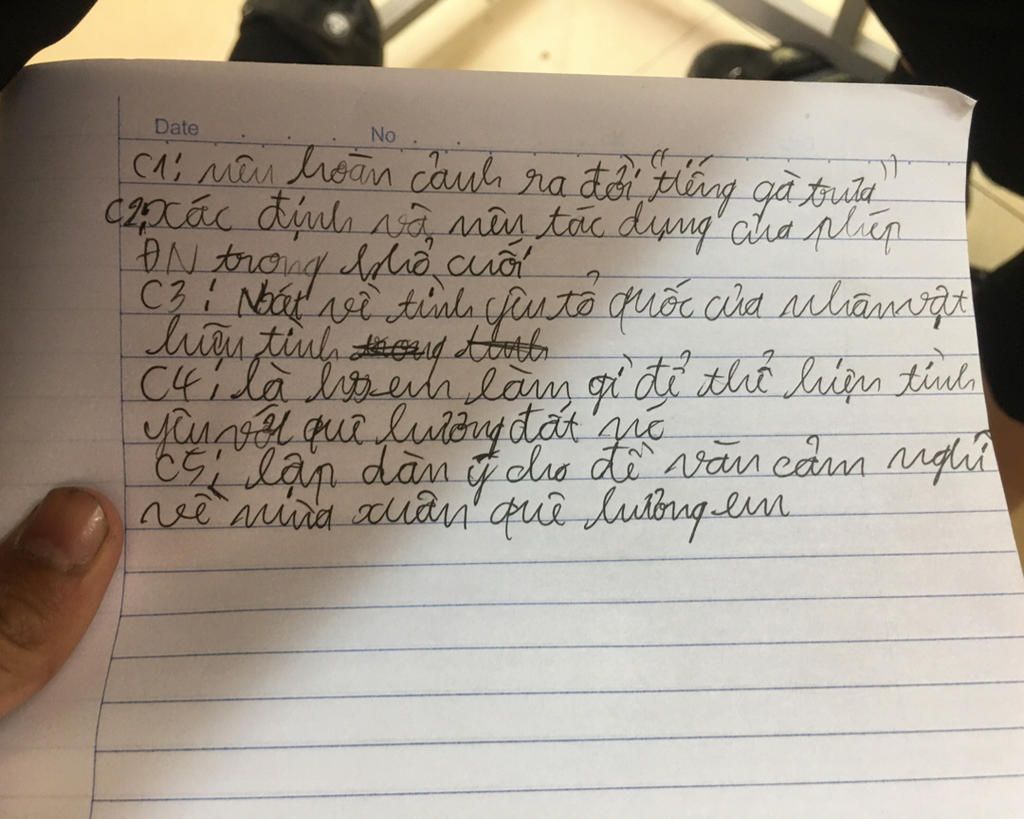 Date No
C1: nêu hoàn cảnh ra đời "tiếng gà trưa"
C2: xác định và nêu tác dụng của phép
ĐN trong khổ cuối
C3: về tình yêu tổ quốc của nhân vật
hiện tình
C4: là hs em làm gì để thể hiện tình
yêu với quê hương đất nc
C5: lập dàn ý cho đề văn cảm nghĩ
về mùa xuân quê hương em